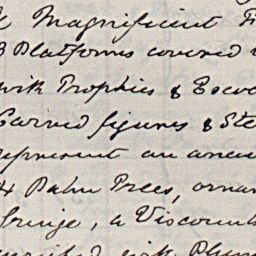 Magnificent
3 Platforms covered
with Trophies & Escu
Carved figures & Ste
represent an ancie
4 Palm Trees, ornam
fringe, a Viscount
with Plum